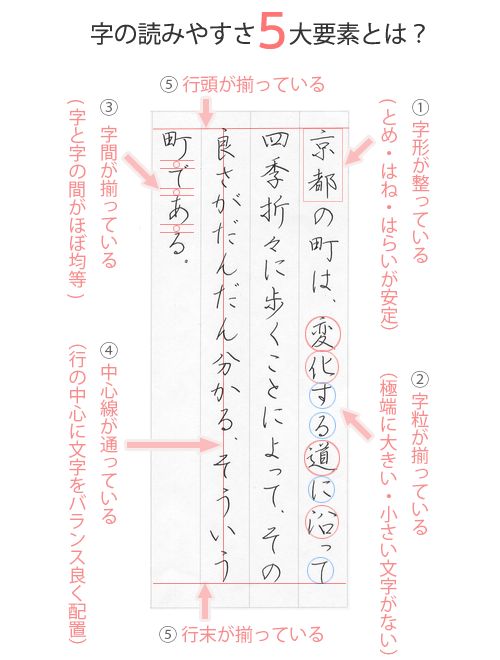 字の読みやすさ5大要素とは？
⑤ 行頭が揃っている
① 字形が整っている
(とめ・はね・はらいが安定)
② 字粒が揃っている
(極端に大きい・小さい文字がない)
京都の町は、変化する道に沿って
四季折々に歩くことによって、その
良さがだんだん分かる、そういう
町である。
③ 字間が揃っている
(字と字の間がほぼ均等)
④ 中心線が通っている
(行の中心に文字をバランス良く配置)
⑤ 行末が揃っている